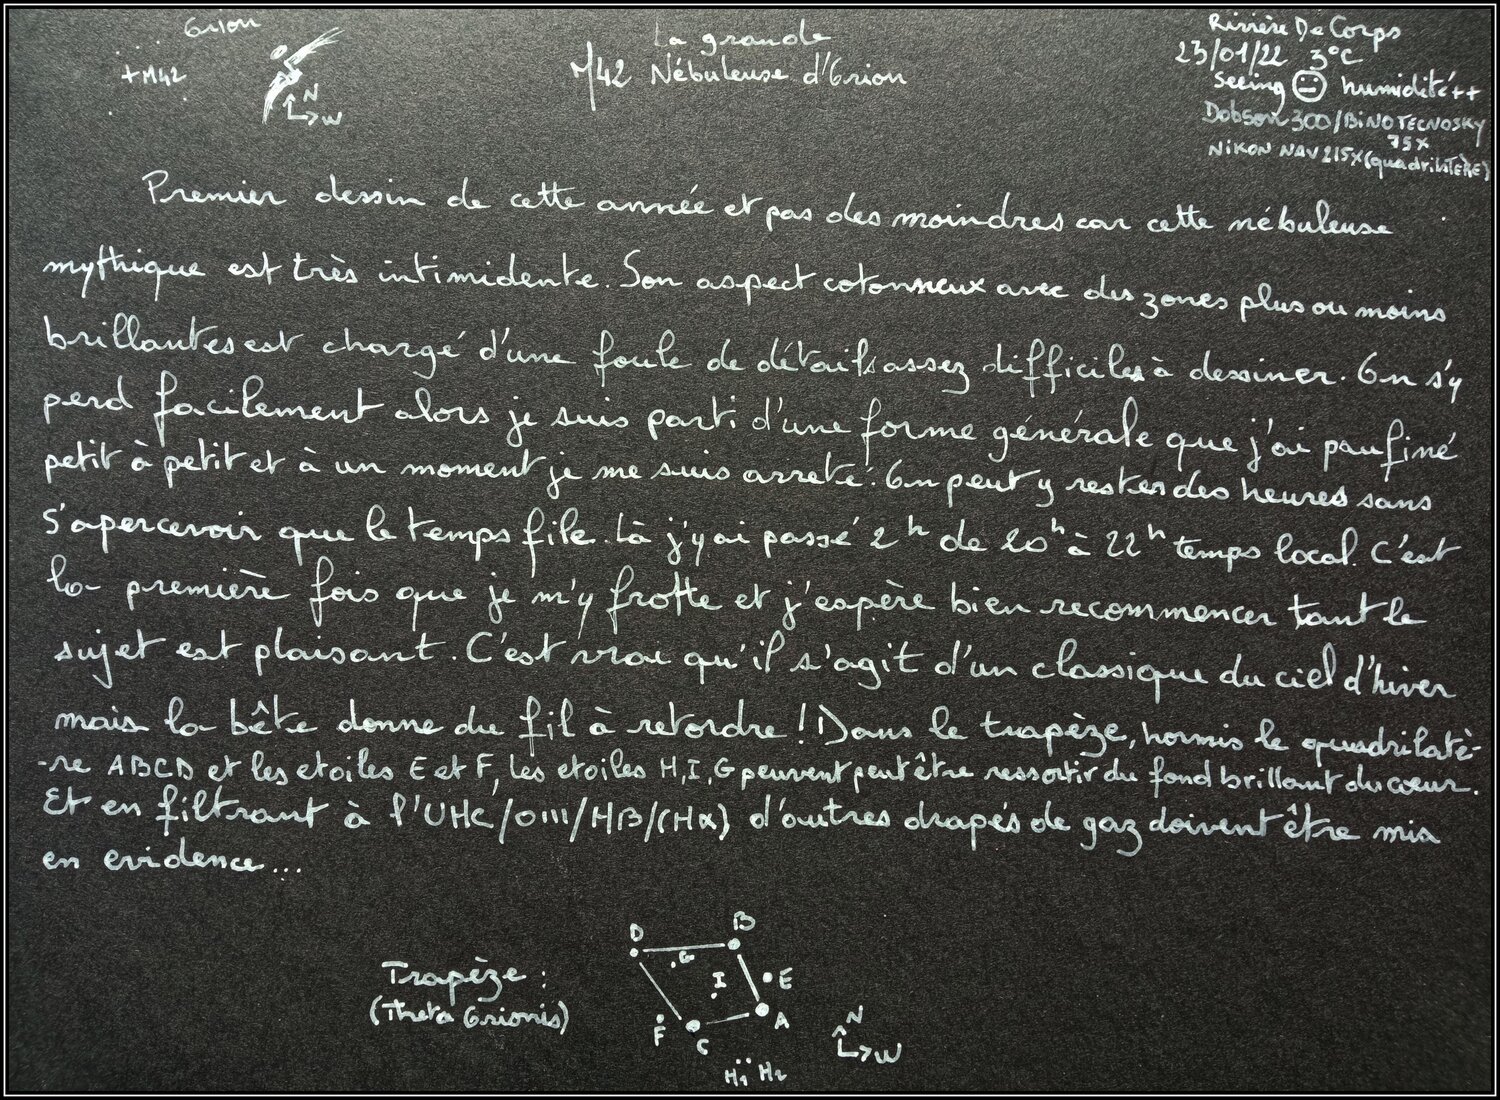 Orion
+M42
N
W
La grande
M42 Nébuleuse d'Orion
Rivière De Corps
23/01/22 3°C
Seeing 😐 humidité++
Dobson 300/BINOTECNOSKY
75X
NIKON NAV 215X (quadrilatÈRE)
Premier dessin de cette année et pas des moindres car cette nébuleuse
mythique est très intimidente. Son aspect cotonneux avec des zones plus ou moins
brillantes est chargé d'une foule de détails assez difficiles à dessiner. On s'y
perd facilement alors je suis parti d'une forme générale que j'ai paufiné
petit à petit et à un moment je me suis arreté. On peut y rester des heures sans
s'apercevoir que le temps file. Là j'y ai passé 2h de 20h à 22h temps local. C'est
la première fois que je m'y frotte et j'espère bien recommencer tant le
sujet est plaisant. C'est vrai qu'il s'agit d'un classique du ciel d'hiver
mais la bête donne du fil à retordre! Dans le trapèze, hormis le quadrilatè-
-re ABCD et les etoiles E et F, les etoiles H, I, G peuvent peut être ressortir du fond brillant du cœur.
Et en filtrant à l'UHC/OIII/HB/(Hα) d'autres drapés de gaz doivent être mis
en evidence...
Trapèze :
(Theta Orionis)
D
B
G
I
E
F
C
A
H1 H2
N
W